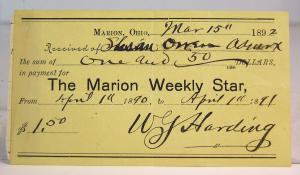 MARION, OHIO, Mar 15th 1892
Received of Susan
The sum of One and 50/100 DOLLARS,
in payment for
The Marion Weekly Star,
From April 1st 1890, to April 1st 1891
$1.50 W G Harding